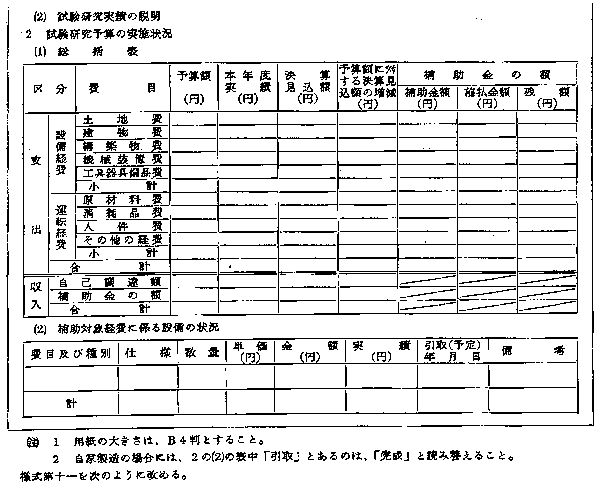 (2) 試験研究実績の説明
2 試験研究予算の実施状況
(1) 総括表
区分 費目 予算額(円) 本年度実績(円) 決算見込額(円) 予算額に対する決算見込額の増減(円) 補助金の額
補助金額(円) 概払金額(円) 残額(円)
支出
設備経費
土地費
建物費
構築物費
機械装置費
工具器具備品費
小計
運転経費
原材料費
消耗品費
人件費
その他の経費
小計
合計
収入
自己調達額
補助金の額
合計
(2) 補助対象経費に係る設備の状況
費目及び種別 仕様 数量 単価(円) 金額(円) 実績(円) 引取(予定)年月日 備考
計
(注) 1 用紙の大きさは、B4判とすること。
2 自家製造の場合には、2の(2)の表中「引取」とあるのは、「完成」と読み替えること。
様式第十一を次のように改める。